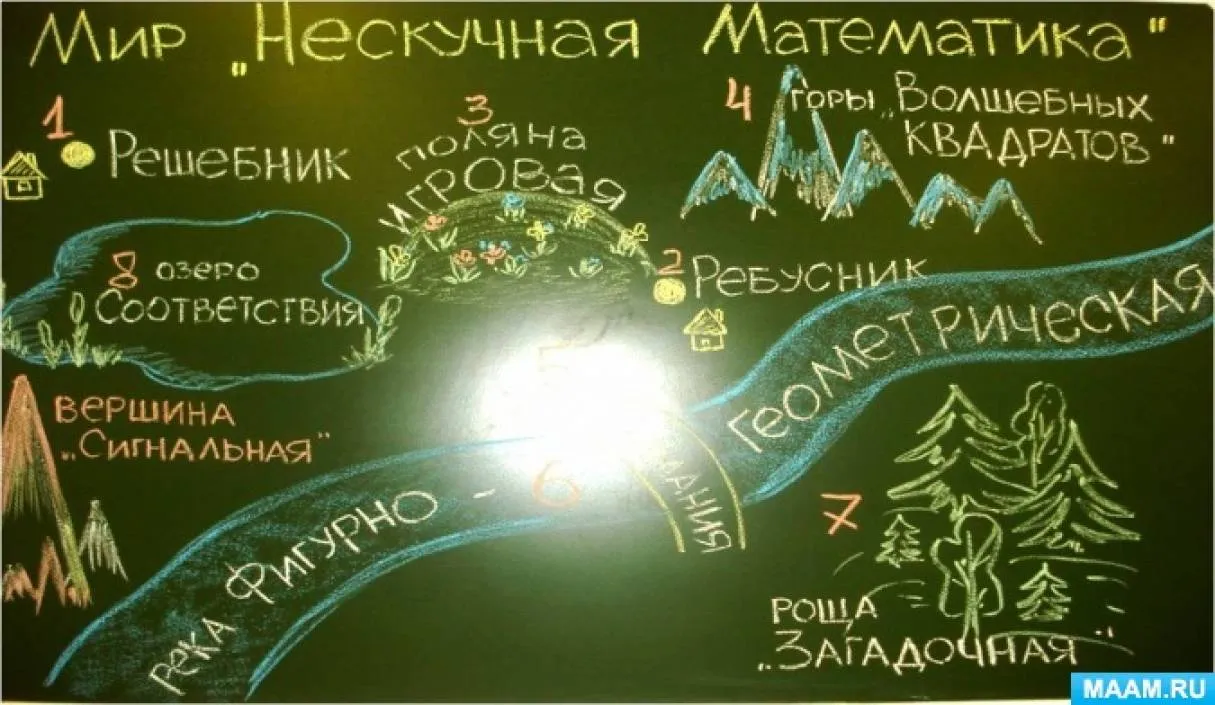 Мир „Нескучная Математика"
1
Решебник
3
поляна
Игровая
4
горы „Волшебных
Квадратов"
2
Ребусник
8 озеро
Соответствия
вершина
„Сигнальная"
река Фигурно - Геометрическая
6
7
роща
„Загадочная"
MAAM.RU